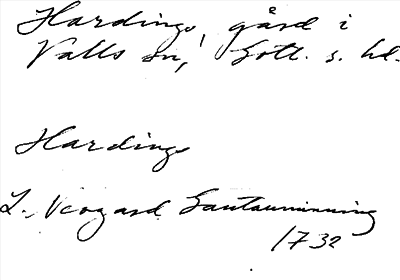 Hardings, gård i
Valls sn, Gotl. s. hd.
Hardings
L. Veogard Gautauminning
1732